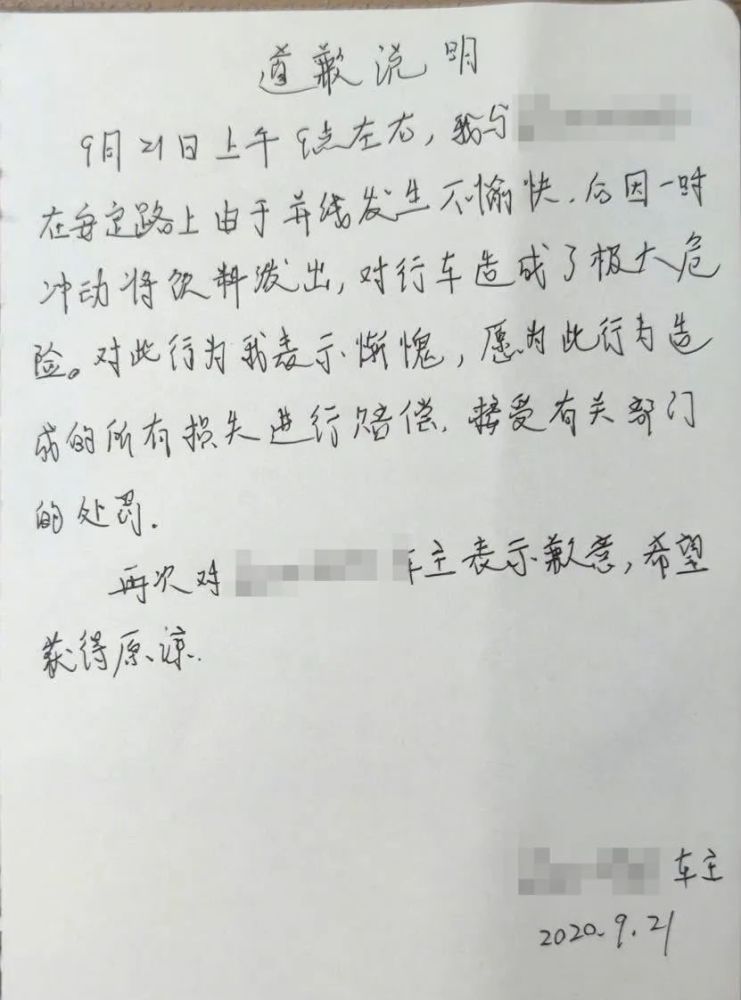 道歉说明
9月21日上午9点左右，我与
在安定路上由于并线发生不愉快.后因一时
冲动将饮料泼出，对行车造成了极大危
险。对此行为我表示惭愧，愿为此行为造
成的所有损失进行赔偿.接受有关部门
的处罚.
再次对 车主表示歉意，希望
获得原谅.
车主
2020.9.21